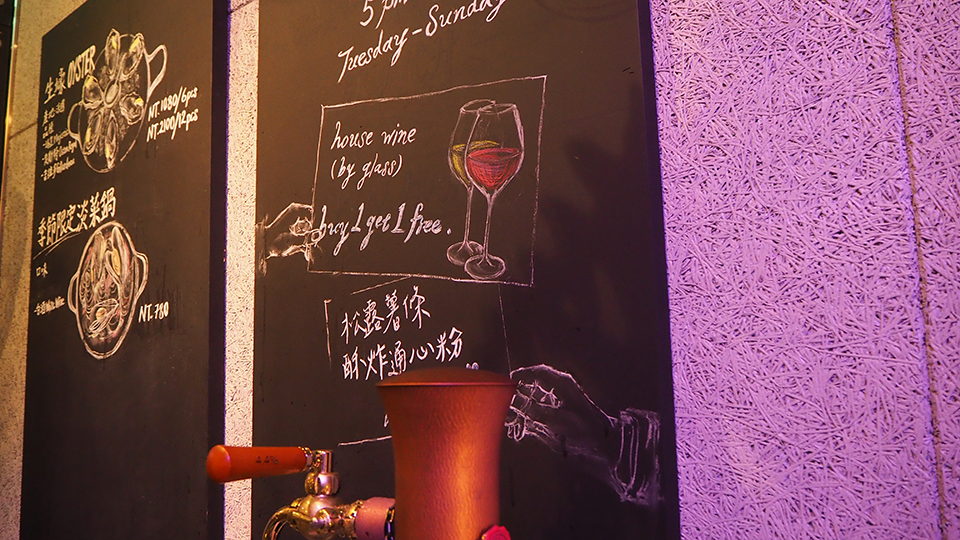 生蠔 OYSTER
NT. 1080/6pcs
NT. 2100/12pcs
季節限定淡菜鍋
口味
NT. 780
5 pm
Tuesday-Sunday
house wine
(by glass)
buy 1 get 1 free.
松露薯條
酥炸通心粉